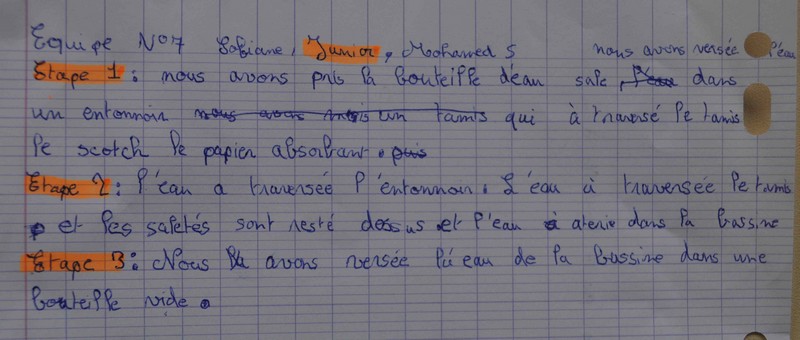 Equipe N°7 Sabiane, Junior, Mohamed S nous avons versée l'eau
Etape 1: nous avons pris la bouteille d'eau sale dans
un entonnoir un tamis qui à traversé le tamis
le scotch le papier absorbant.
Etape 2: l'eau a traversée l'entonnoir. L'eau à traversée le tamis
et les saletés sont resté dessus et l'eau à aterie dans la bassine
Etape 3: Nous avons versée l'eau de la bassine dans une
bouteille vide.